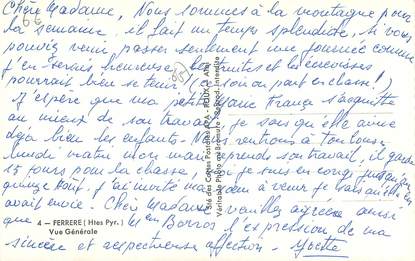 Chère Madame, Nous sommes à la montagne pour
la semaine, il fait un temps splendide, si vous
pouviez venir passer seulement une journée comme
j'en serais heureuse, les truites et les écrevisses
pourrait bien se tenir, ce soir on part en chasse!
J'espère que ma petite France s'acquitte
au mieux de son travail, je sais qu'elle aime
déjà bien les enfants. Nous rentrons à Toulouse
lundi matin mon mari reprends son travail, il garde
15 jours pour la chasse, moi je suis en congé jusqu'au
quinze Août. J'ai à venir je sais
avait envie. Chère Madame veuillez agréer ainsi
que Mme Borros l'expression de ma
sincère et respectueuse affection. Yvette
66
(85)
4 - FERRERE (Htes Pyr.)
Vue Générale
Sté des Cartes Postales APA-POUX, ALBI
Véritable Photo au Bromure - Reprod. Interdite